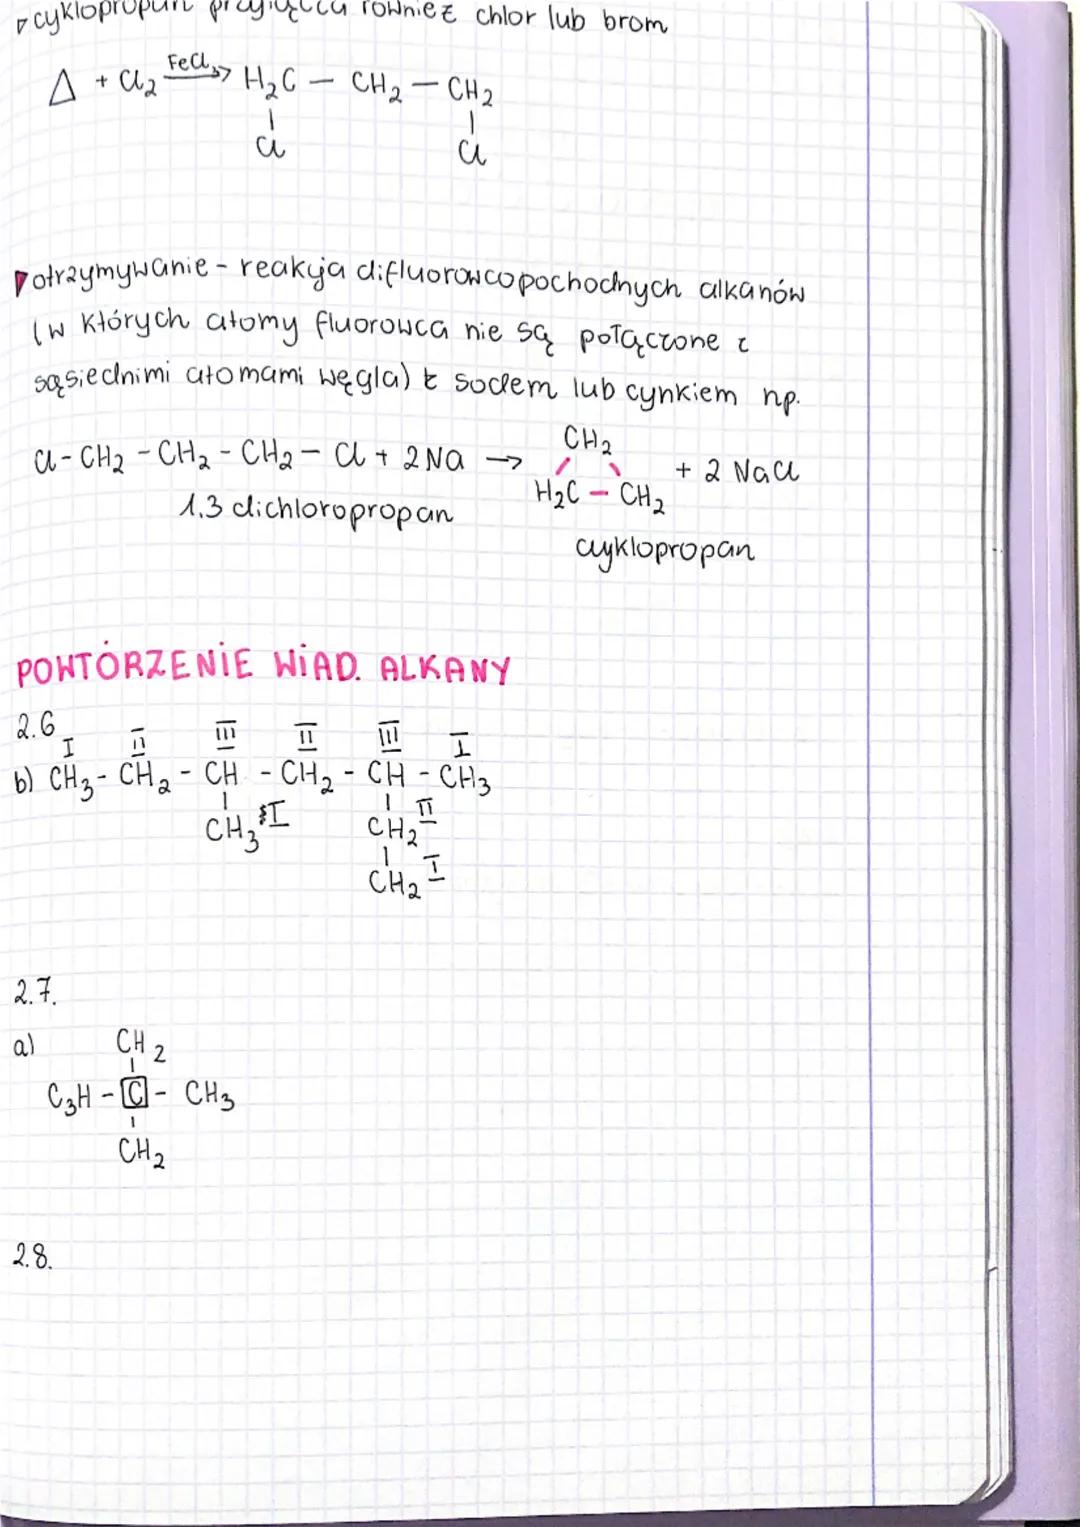 cyklopropan przyłącza również chlor lub brom
△ + Cl2 FeCl3→ H2C - CH2 - CH2
Cl Cl
otrzymywanie - reakcja difluorowcopochodnych alkanów
(w których atomy fluorowca nie są połączone z
sąsiednimi atomami węgla) z sodem lub cynkiem np.
Cl-CH2-CH2-CH2-Cl + 2Na → CH2 H2C - CH2 + 2 NaCl
1.3 dichloropropan
cyklopropan
POWTÓRZENIE WIAD. ALKANY
2.6
I II III II III I
b) CH3 - CH2 - CH - CH2 - CH - CH3
CH3 I CH2 II
CH2 I
2.7.
a) CH2
C3H - C - CH3
CH2
2.8.